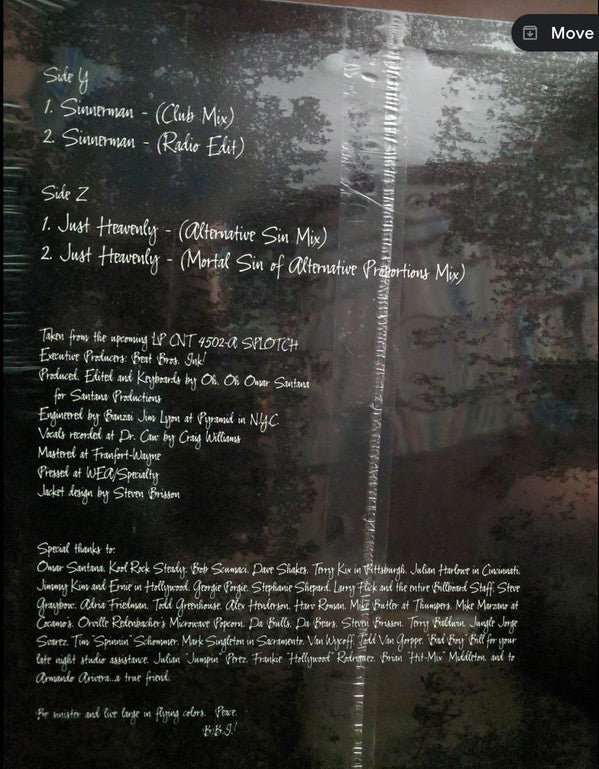 Move
Side Y
1. Sinnerman - (Club Mix)
2. Sinnerman - (Radio Edit)
Side Z
1. Just Heavenly - (Alternative Sin Mix)
2. Just Heavenly - (Mortal Sin of Alternative Proportions Mix)
Taken from the upcoming LP CNT 4502-A SPLOTCH
Executive Producers: Beat Bros. Ink!
Produced, Edited and Keyboards by Oh, Oh Omar Santana
for Santana Productions
Engineered by Banzai Jim Lyon at Pyramid in N.Y.C.
Vocals recorded at Dr. Caw by Craig Williams
Mastered at Franfort-Wayne
Pressed at WEA/Specialty
Jacket design by Steven Brisson
Special thanks to:
Omar Santana, Kool Rock Steady, Bob Scumaci, Dave Shakes, Terry Kix in Pittsburgh, Julian Harlowe in Cincinnati,
Jimmy Kim and Ernie in Hollywood, Georgie Porgie, Stephanie Shepard, Larry Flick and the entire Billboard Staff, Steve
Graybow, Adria Friedman, Todd Greenhouse, Alex Henderson, Harv Roman, Mike Butler at Thumpers, Mike Marzano at
Cocamo's, Orville Redenbacher's Microwave Popcorn, Da Bulls, Da Bears, Steven Brisson, Terry Baldwin, Jungle Jorge
Suarez, Tim "Spinnin" Schommer, Mark Singleton in Sacramento, Van Wycoff, Todd Van Gorppe, "Bad Boy" Bill for your
late night studio assistance, Julian "Jumpin" Perez, Frankie "Hollywood" Rodriguez, Brian "Hit-Mix" Middleton, and to
Armando Rivera...a true friend.
Be sinister and live large in flying colors. Peace,
B.B.I.!